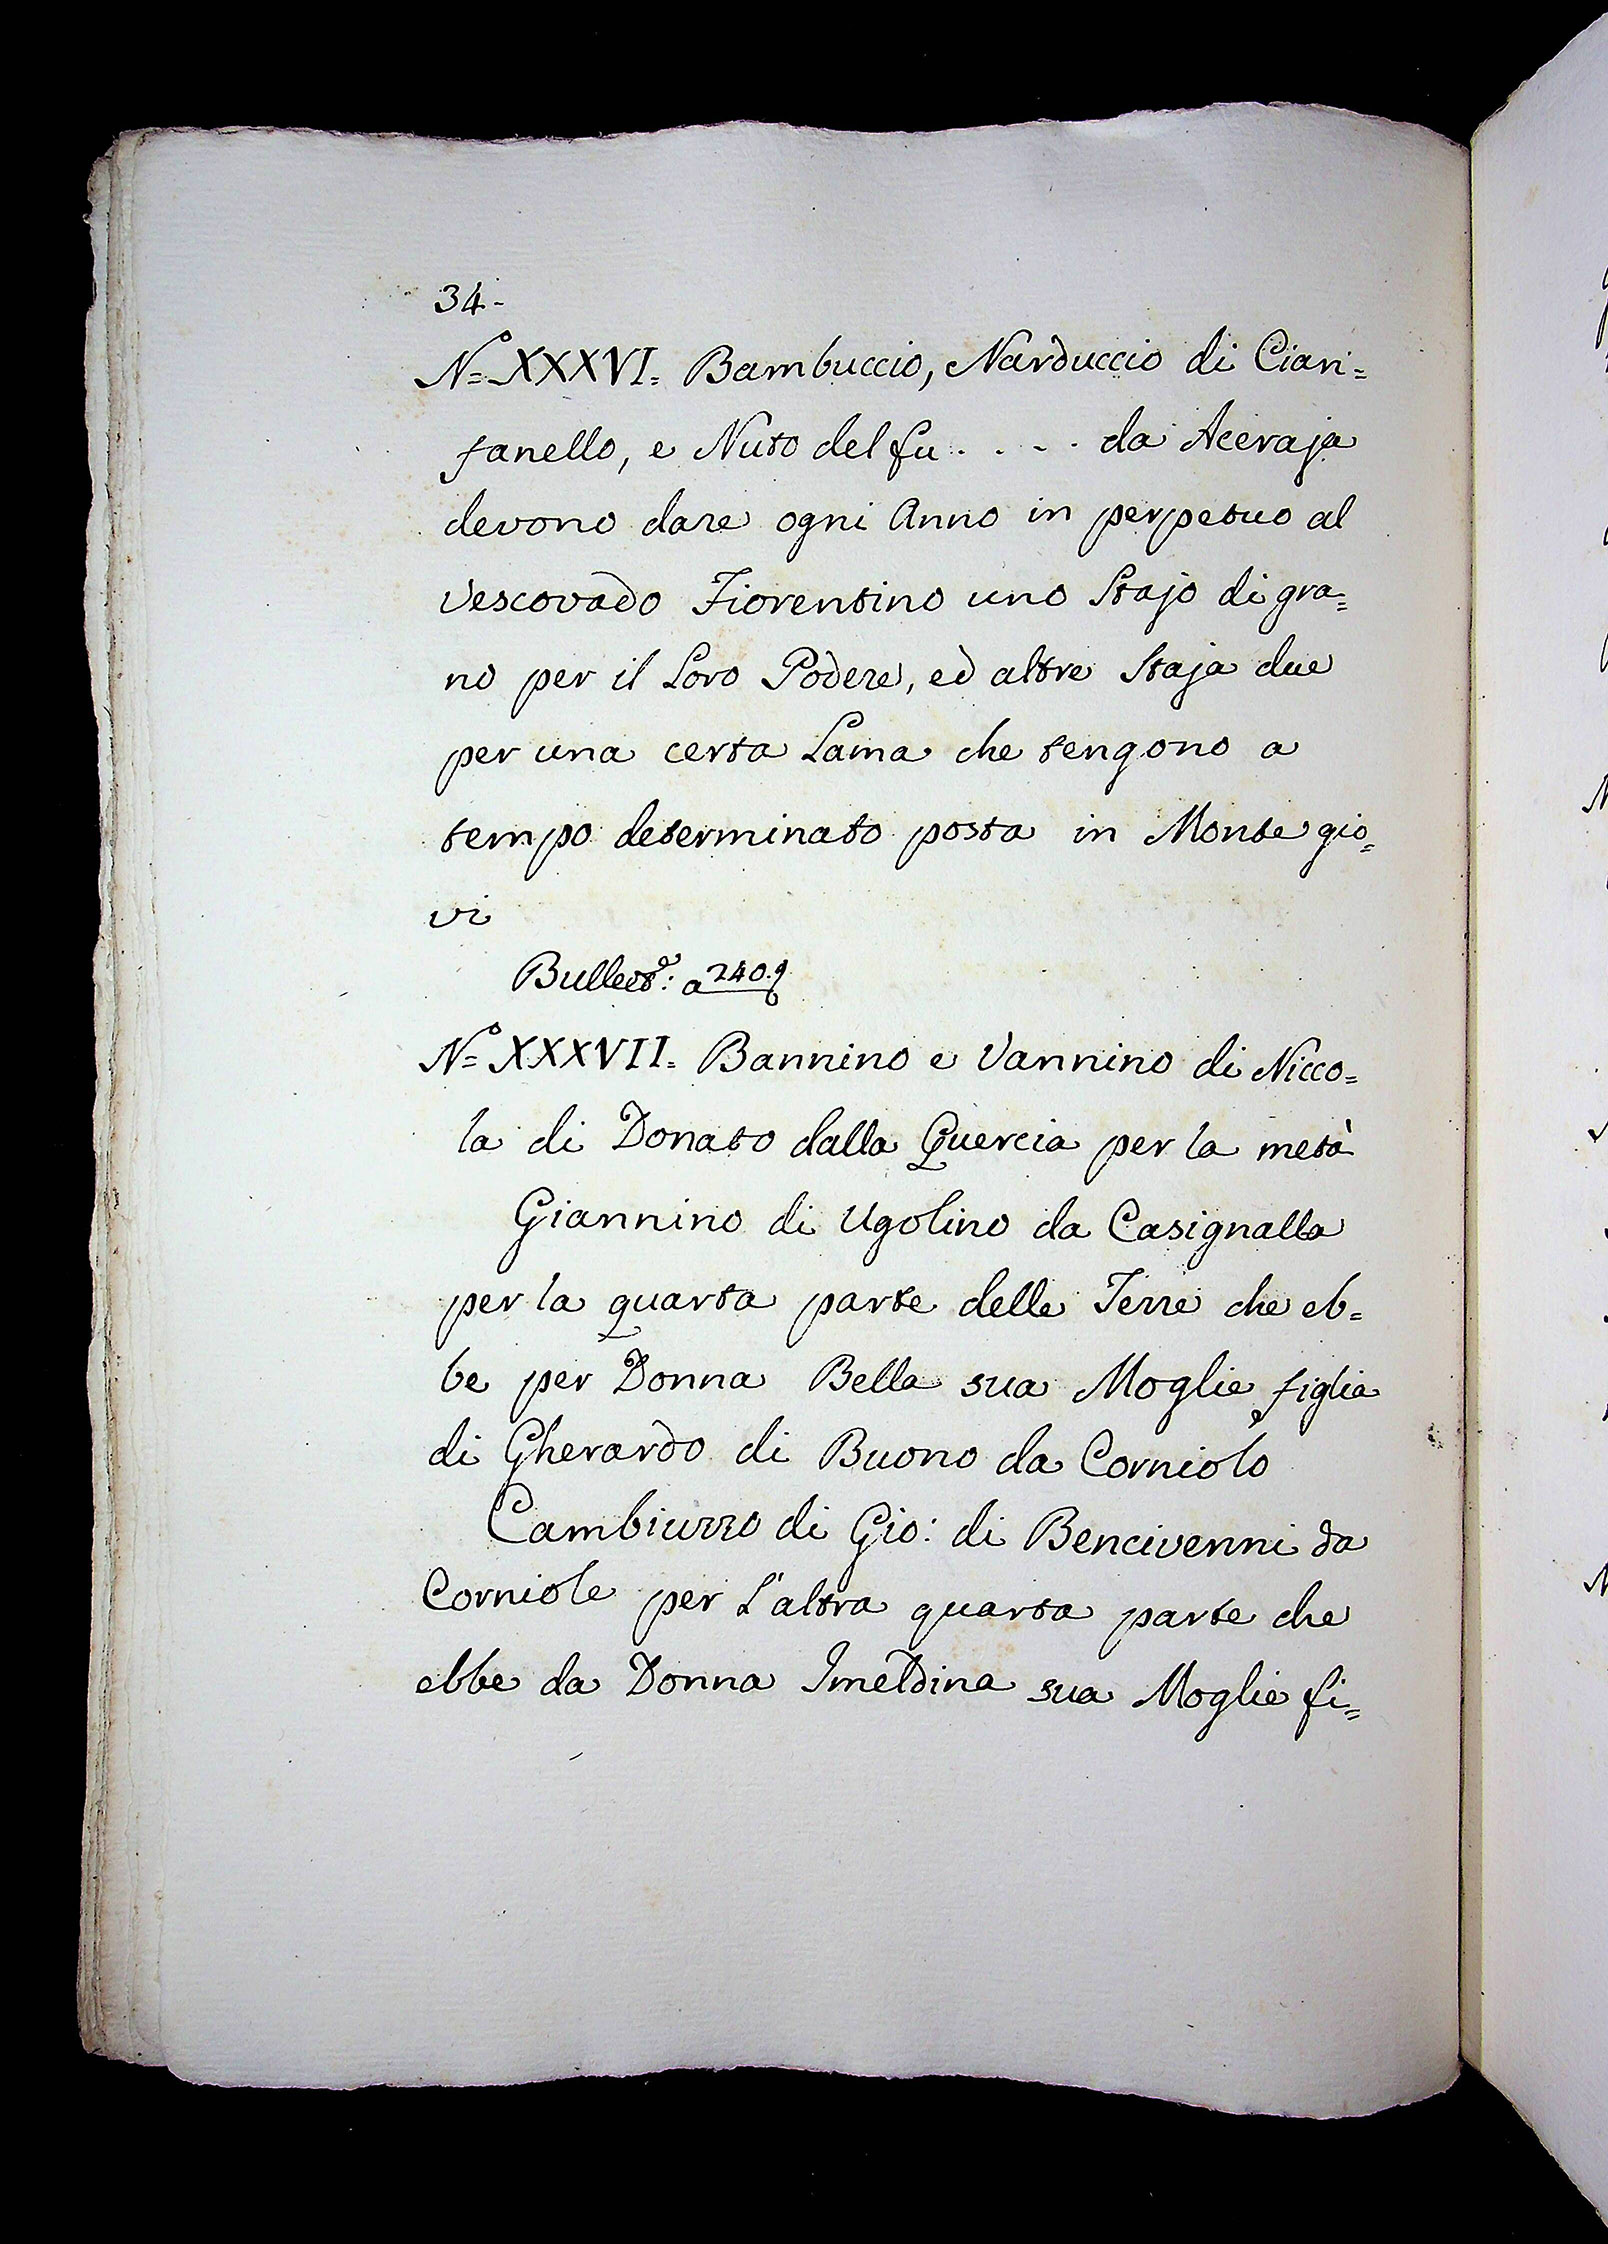 34.
N.º XXXVI. Bambuccio, Narduccio di Ciari=
fanello, e Nuto del fu . . . . da Aceraja
devono dare ogni Anno in perpetuo al
Vescovado Fiorentino uno Stajo di gra=
no per il Loro Podere, ed altre Staja due
per una certa Lama che tengono a
tempo determinato posta in Monte gio=
vi
Bullett.º: a 240.
N.º XXXVII. Bannino e Vannino di Nicco=
la di Donato dalla Quercia per la metà
Giannino di Ugolino da Casignalla
per la quarta parte delle Terre che eb=
be per Donna Bella sua Moglie figlia
di Gherardo di Buono da Corniolo
Cambiuzzo di Gio: di Bencivenni da
Corniole per L'altra quarta parte che
ebbe da Donna Imeldina sua Moglie fi=